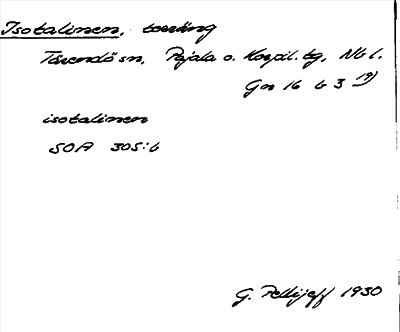 Isotalinen, torräng
Tärendö sn, Pajala o. Korpil. tg, Nb l.
Gn 16 b 3 19)
isotalinen
SOA 305:6
G. Pellijeff 1930